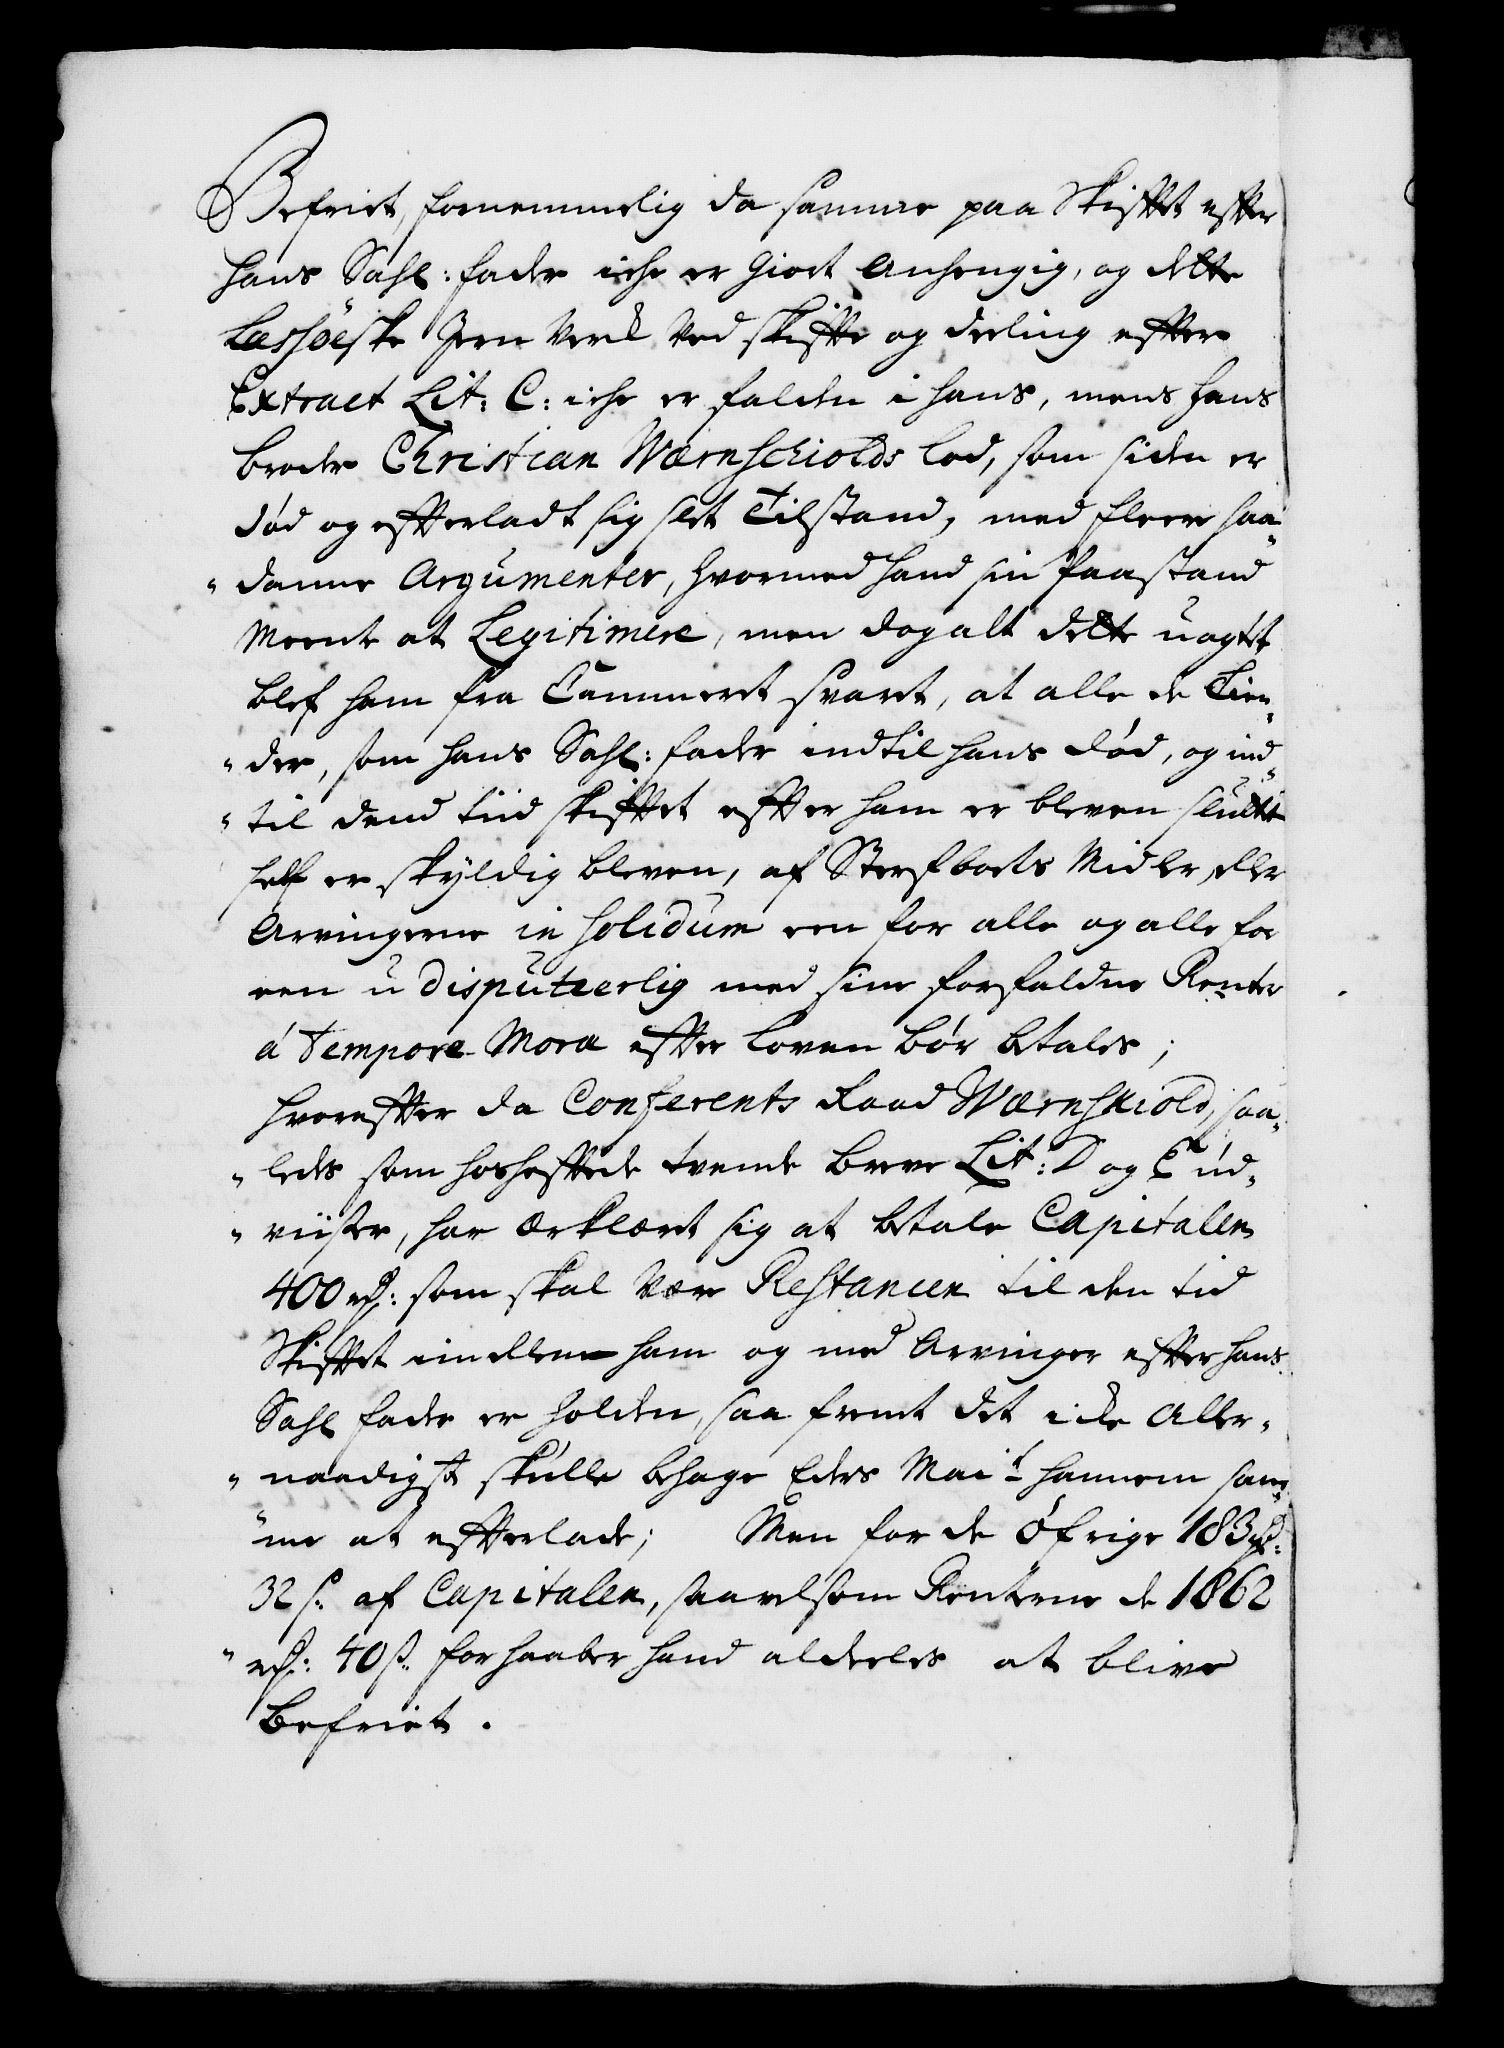 Befriet, fornemmelig da samme paa Skifftet effter
hans Sahl: fader iche er giort Anhengig, og dette
Lassöeske Jern Verk ved skiffte og deeling effter
Extract Lit: C: iche er falden i hans, mens hans
broder Christian Wærnschiolds lod, som siden er
död og effterladt sig slet Tilstand, med fleere saa-
danne Argumenter, hvormed hand sin Paastand
Meente at Legitimere, men dog alt dette uagtet
blef ham fra Cammeret svaret, at alle de Tien-
der, som hans Sahl: fader indtil hans död, og ind-
til dend tiid skifftet effter ham er bleven sluttet
self er skyldig bleven, af Sterfboets Midler eller
Arvingerne in solidum een for alle og alle for
een u disputeerlig med sine forfaldne Renter
á Tempore Mora effter loven bör betales;
hvoreffter da Conferents Raad Wærnskiold, saa-
ledes som hosheffted tvende breve Lit: D og E ud-
viiser, har ærklæret sig at betale Capitalen
400 rd: som skal være Restancen til den tid
Skifftet imellem ham og med Arvinger effter hans
Sahl fader er holden, saa fremt det icke Aller-
naadigst skulle behage Eders Mait hannem sam-
me at effterlade; Men for de öfrige 183 rd:
32 s: af Capitalen, saavelsom Renterne de 1862
rd: 40 s: forhaaber hand aldeeles at blive
befriet.